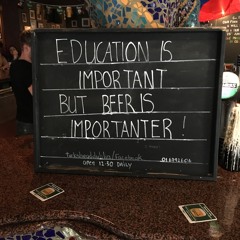 EDUCATION IS
IMPORTANT
BUT BEER IS
IMPORTANTER!
OPEN 12.30 DAILY